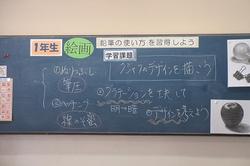 1年生 絵画 鉛筆の使い方を習得しよう
学習課題
クジャクのデザインを描こう
①ぬりつぶし
筆圧
②ハッチング
線の
グラデーションを工夫して
明→暗
デザインを考えよう